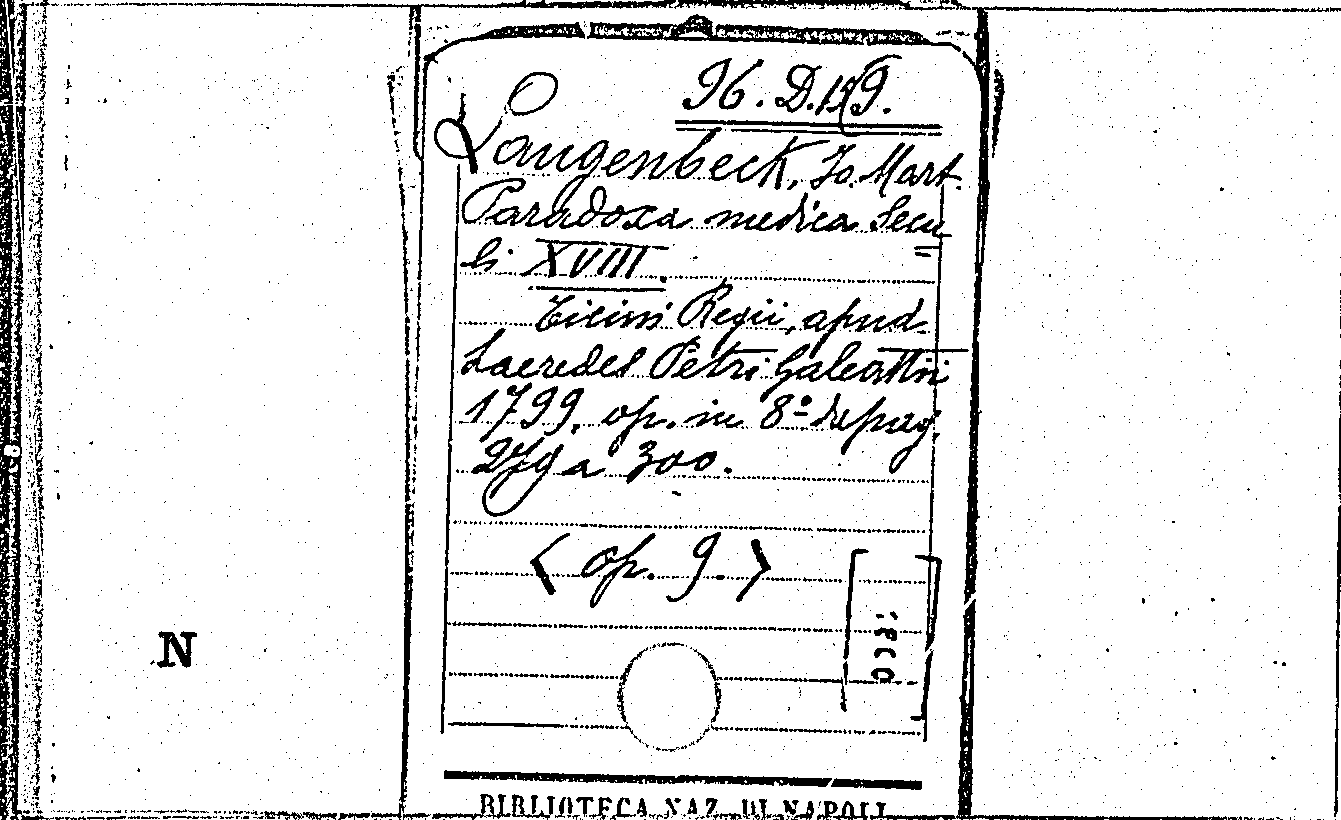 96. D.
Langenbeck, Jo. Mart.
Paradoxa medica Secu
li XVIII.
Ticini Regii, apud
haeredes Petri Galeatii
1799. op. in 8º da pag.
279 a 300.
< op. 9. >
N
BIBLIOTECA NAZ. DI NAPOLI